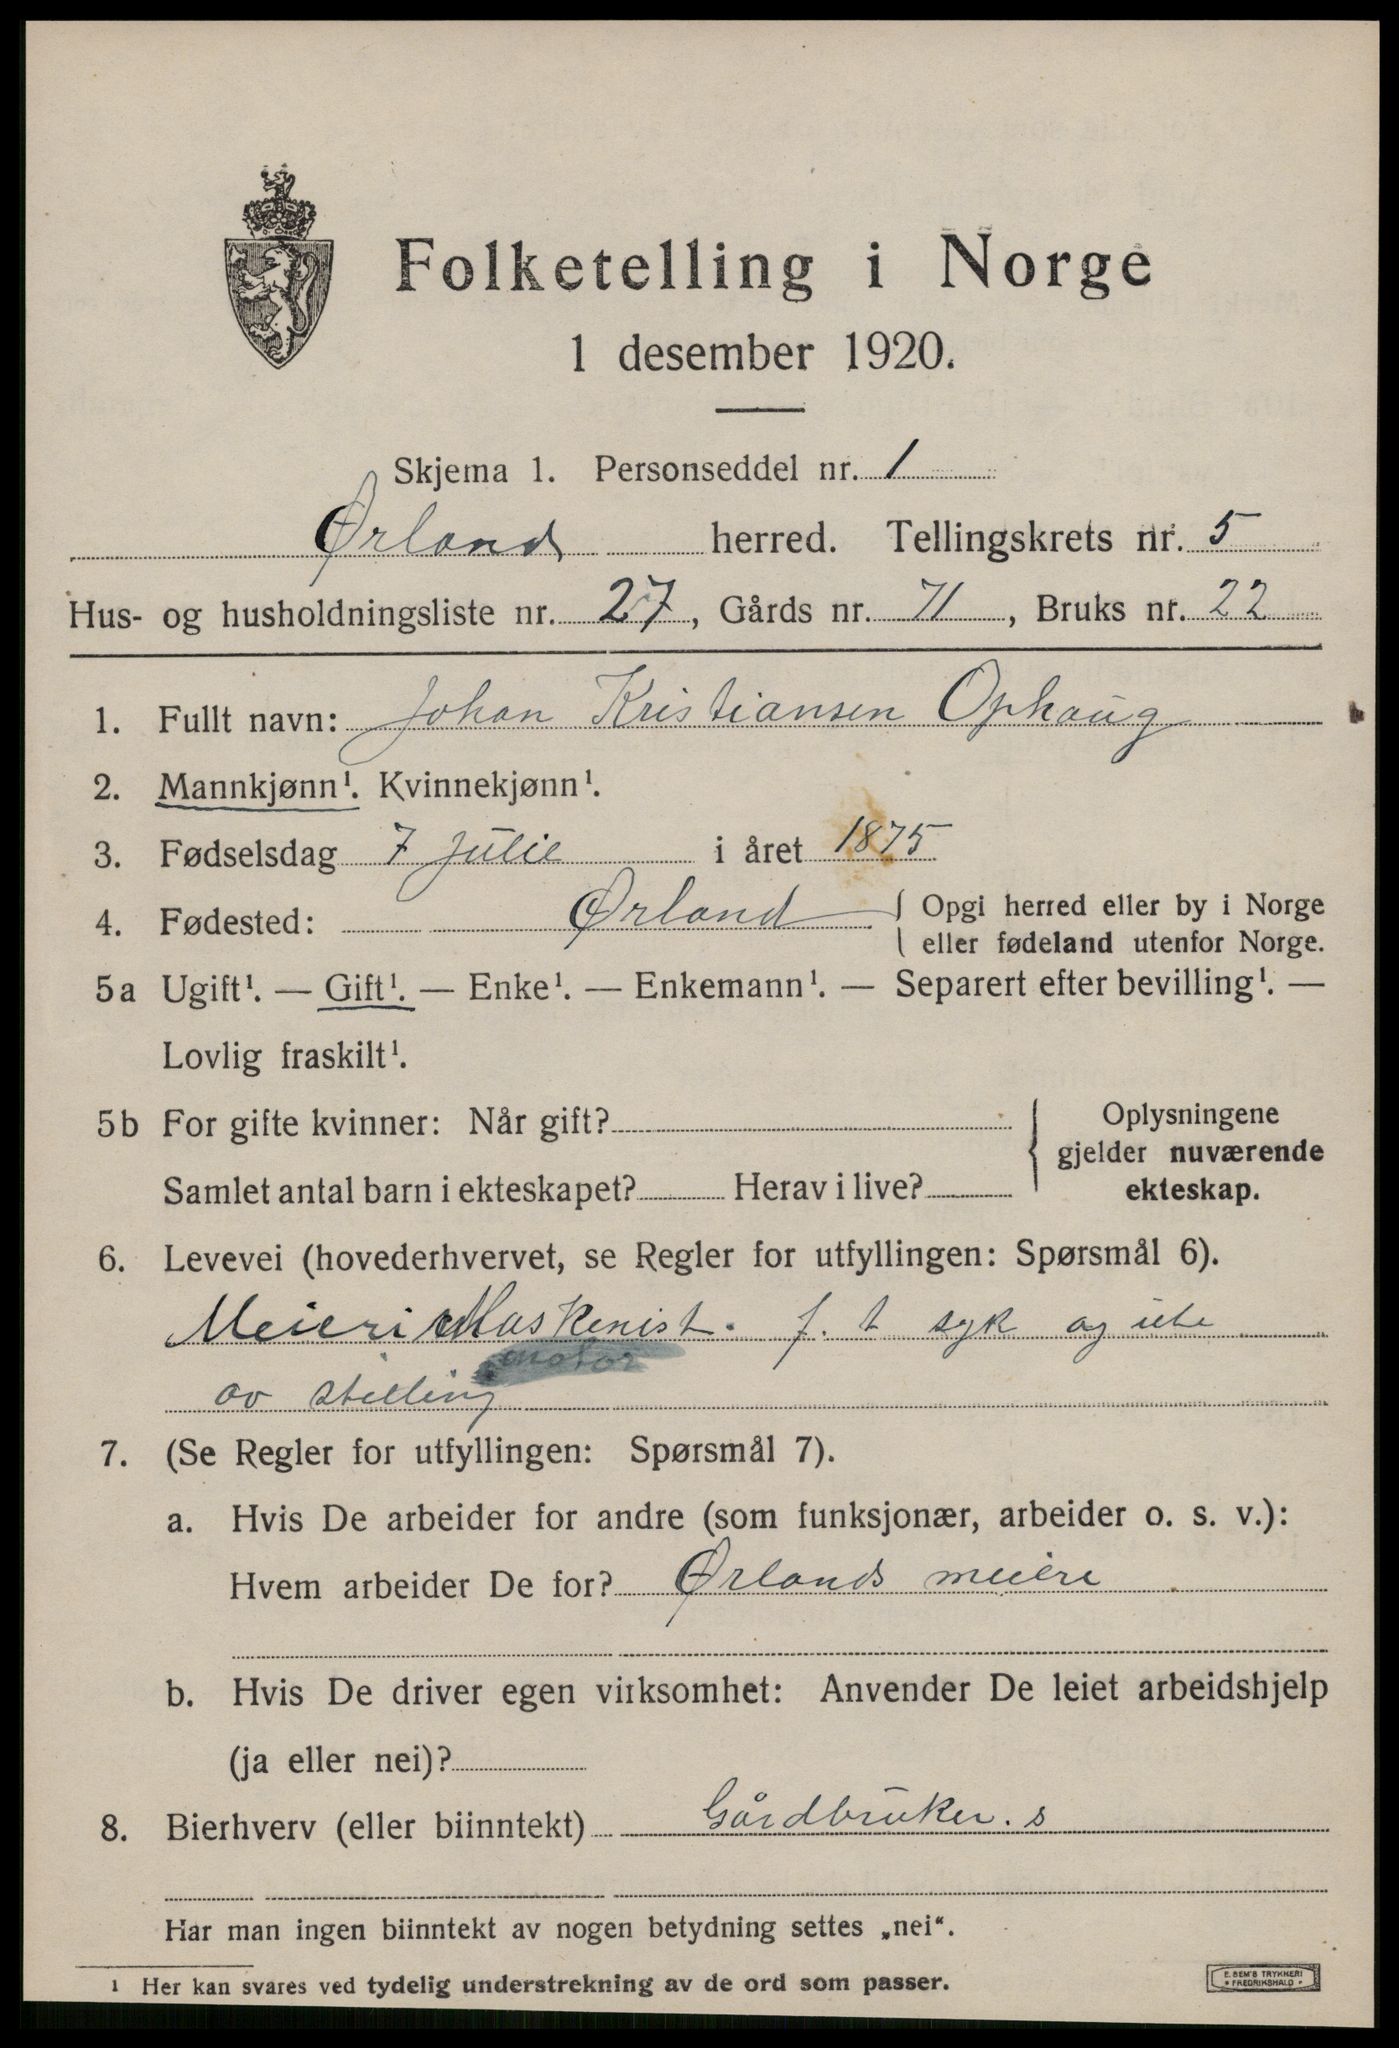 Folketelling i Norge
1 desember 1920.
Skjema 1. Personseddel nr. 1
Ørland herred. Tellingskrets nr. 5
Hus- og husholdningsliste nr. 27, Gårds nr. 71, Bruks nr. 22
1. Fullt navn: Johan Kristiansen Ophaug
2. Mannkjønn¹. Kvinnekjønn¹.
3. Fødselsdag 7 Julie i året 1875
4. Fødested: Ørland { Opgi herred eller by i Norge
eller fødeland utenfor Norge.
5a Ugift¹. — Gift¹. — Enke¹. — Enkemann¹. — Separert efter bevilling¹. —
Lovlig fraskilt¹.
5b For gifte kvinner: Når gift? { Oplysningene
gjelder nuværende
Samlet antal barn i ekteskapet? Herav i live? ekteskap.
6. Levevei (hovederhvervet, se Regler for utfyllingen: Spørsmål 6).
Meieri Maskenist. f. t syk og ute
motor
av stilling
7. (Se Regler for utfyllingen: Spørsmål 7).
a. Hvis De arbeider for andre (som funksjonær, arbeider o. s. v.):
Hvem arbeider De for? Ørlands meiere
b. Hvis De driver egen virksomhet: Anvender De leiet arbeidshjelp
(ja eller nei)?
8. Bierhverv (eller biinntekt) Gårdbruker. s
Har man ingen biinntekt av nogen betydning settes „nei“.
¹ Her kan svares ved tydelig understrekning av de ord som passer.
E. SEM'S TRYKKERI
* FREDRIKSHALD *